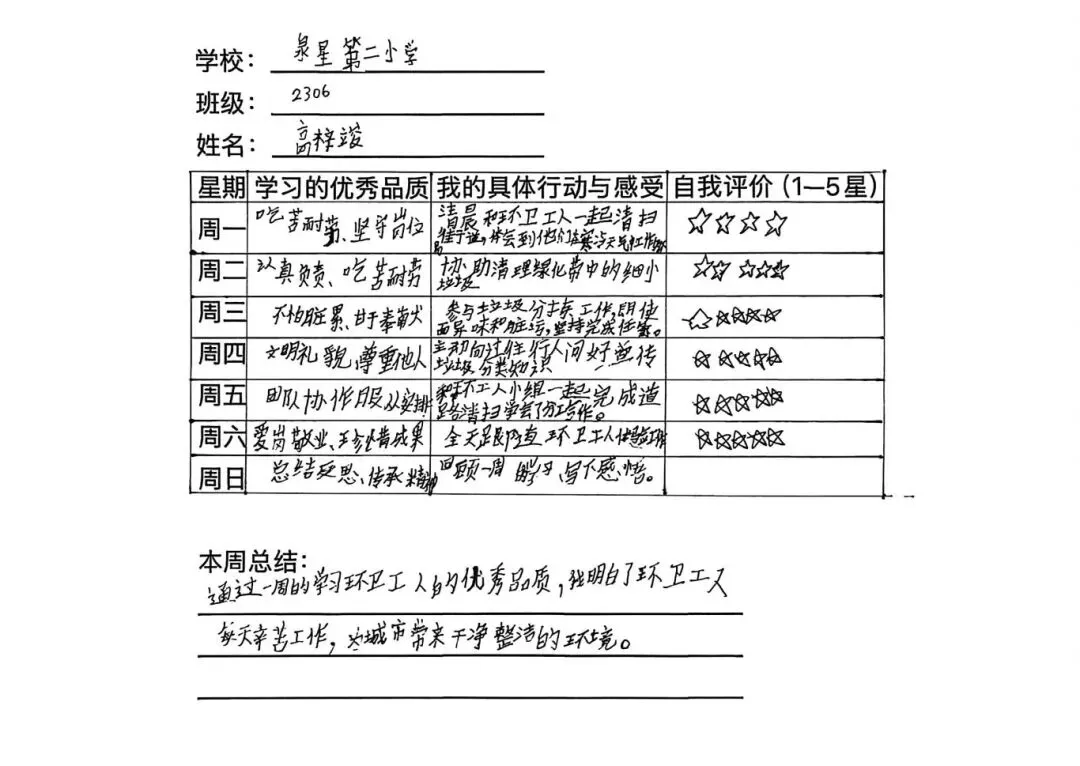 学校： 泉星第二小学
班级： 2306
姓名： 高梓竣
星期 学习的优秀品质 我的具体行动与感受 自我评价（1—5星）
周一 吃苦耐劳、坚守岗位 清晨和环卫工人一起清扫
街道，体会到他们在寒冷天气工作
☆☆☆☆
周二 认真负责、吃苦耐劳 协助清理绿化带中的细小
垃圾
☆☆☆☆☆
周三 不怕脏累、甘于奉献 参与垃圾分类工作，即使
面异味和脏污，坚持完成任务。
☆☆☆☆☆
周四 文明礼貌，尊重他人 主动向过往行人问好宣传
垃圾分类知识
☆☆☆☆☆
周五 团队协作服从安排 和环卫工人小组一起完成道
路清扫学会了分工合作。
☆☆☆☆☆
周六 爱岗敬业、珍惜成果 全天跟随 环卫工人
☆☆☆☆☆
周日 总结反思、传承精神 回顾一周 学习，写下感悟。
本周总结：
通过一周的学习环卫工人的优秀品质，我明白了环卫工人
每天辛苦工作，为城市带来干净整洁的环境。